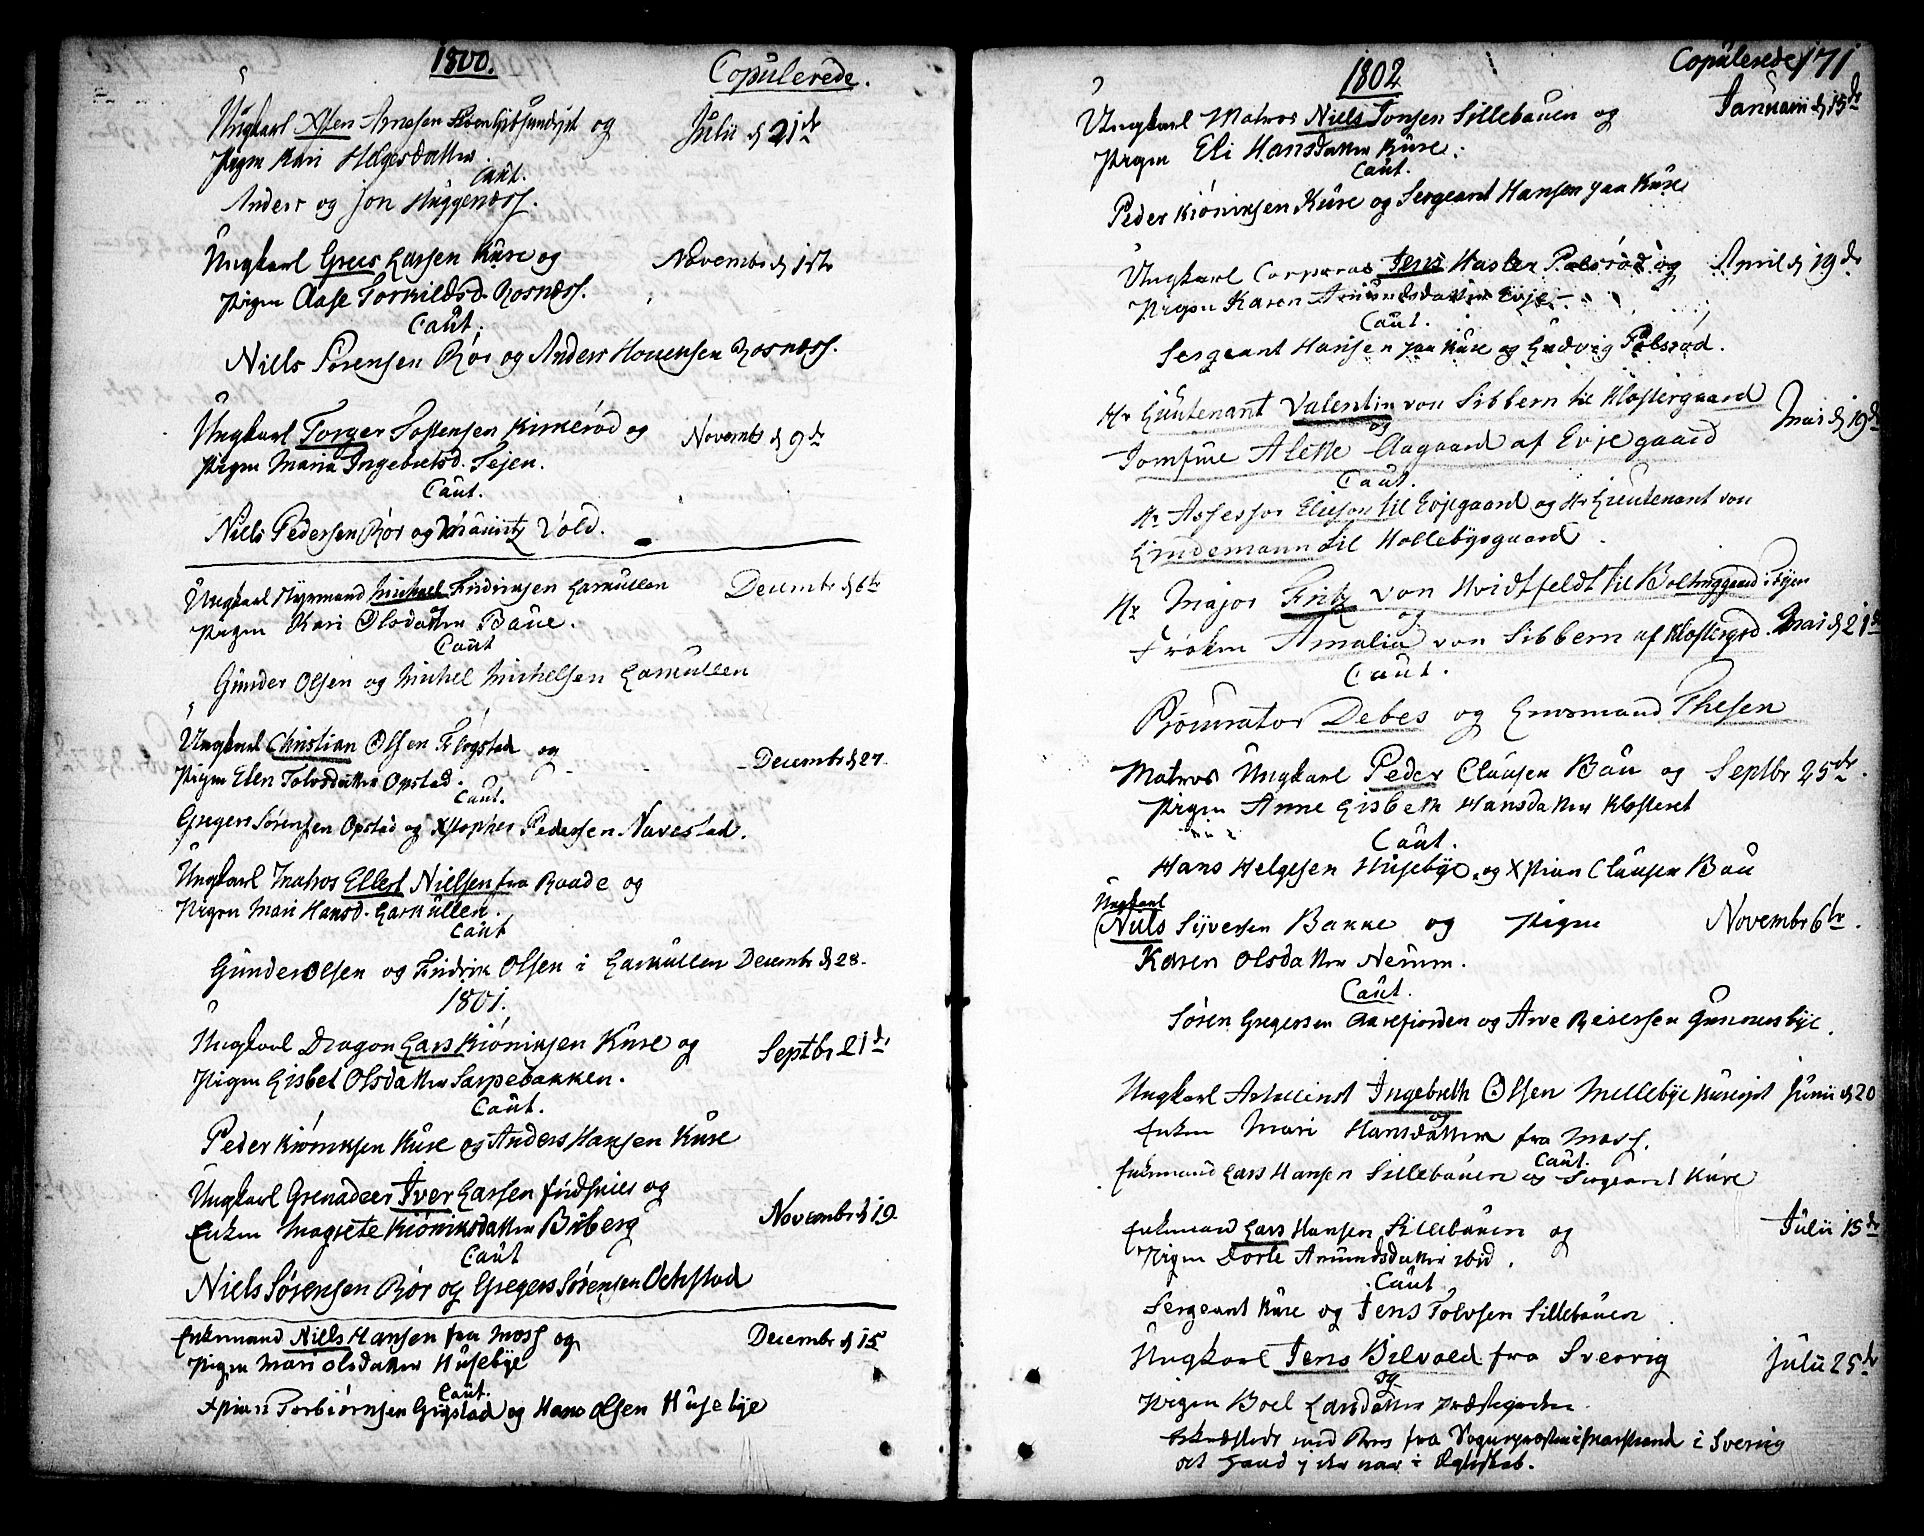 1800.
Copulerede.
Ungkarl Xsten Arnesen og Julii d 21de
Pigen Kari Helgesdatter.
Caut.
Anders og Jon Huggenæss.
Ungkarl Grees Larsen Kure og Novembr d 1ste
Pigen Aase Torkildsd. Rosnæss.
Caut.
Niels Sørensen Rør og Anders Hovensen Rosnæss.
Ungkarl Torger Sostensen Kirkerød og Novembr d 9de
Pigen Maria Ingebretsd. Sejen.
Caut.
Niels Pedersen Rør og Mauritz Vold.
Ungkarl Styrmand Michael Fridrichsen Larkullen Decembr d 6te
Pigen Kari Olsdatter Baue.
Caut
Gunder Olsen og Michel Michelsen Larkullen
Ungkarl Christian Olsen Flogstad og Decembr d 27.
Pigen Elen Tolvsdatter Opstad.
Caut.
Gregers Sørensen Opstad og Xstopher Pedersen Navestad.
Ungkarl Matros Ellert Nielsen fra Raade og
Pigen Mari Hansd. Larkullen.
Caut
Gunder Olsen og Fridrik Olsen i Larkullen Decembr d 28.
1801.
Ungkarl Dragon Lars Kiøniksen Kure og Septbr 21de
Pigen Lisbet Olsdatter Sarpebakken.
Caut.
Peder Kiøniksen Kure og Anders Hansen Kure
Ungkarl Grenadeer Iver Larsen og Novembr d 19.
Enken Magrete Kiøniksdatter Biberg
Caut
Niels Sørensen Rør og Gregers Sørensen Ochstad
Enkemand Niels Hansen fra Moss og Decembr d 15
Pigen Mari Olsdatter Husebye
Caut.
Xpian Torbiørnsen Grystad og Hans Olsen Husebye
1802
Copulerede 171
Ungkarl Matros Niels Jonsen Sillebauen og Januarii d 15de
Pigen Eli Hansdatter Kure.
Caut.
Peder Kiøniksen Kure og Sergeant Hansen paa Kure
Ungkarl Corporal Jens Hasler Pålsrød og April d 19de
Pigen Karen Amundsdatter Evje
Caut.
Sergeant Hansen paa Kure og Ludvig Pålsrød.
Hr Lieutenant Valentin von Sibbern til Klostergaard Mai d 19de
og
Jomfrue Alette Aagaard af Evje gaard
Caut.
Hr Assessor Elieson til Evjegaard og Hr Lieutenant von
Lindemann til Hollebysgaard.
Hr Major Fritz von Hvidtfeldt til
og
Frøken Amalia von Sibbern af Klostergrd. Mai d 21de
Caut.
Procurator Debes og Thesen
Matros Ungkarl Peder Clausen Bau og Septbr 25de.
Pigen Anne Lisbeth Hansdatter Klosteret
Caut.
Hans Helgesen Husebye og Xstian Clausen Bau
Ungkarl
Niels Syversen Bakke og Pigen Novembr 6te.
Karen Olsdatter Nerum.
Caut.
Søren Gregersen Aarefiorden og Arve Reiersen Gunnersbye.
Ungkarl Artillerist Ingebreth Olsen Mellebye Junii d 20
og
Enken Mari Hansdatter fra Moss.
Caut.
Enkemand Lars Hansen Sillebauen og Sergeant Kure
Enkemand Lars Hansen Sillebauen og Julii 15de
Pigen Dorte Amundsdatter ibid.
Caut
Sergeant Kure og Jens Tolvsen Sillebauen
Ungkarl Jens Bilvald fra Sverrig Julii 25de
og
Pigen Boel Larsdatter Præstegaarden.
med fra i Sverrig
at hand ej var i Ægteskab.